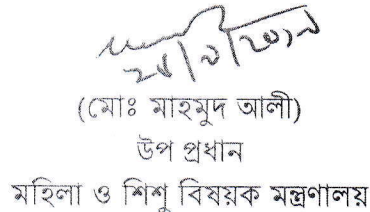 (মোঃ মাহমুদ আলী)
উপ প্রধান
মহিলা ও শিশু বিষয়ক মন্ত্রণালয়